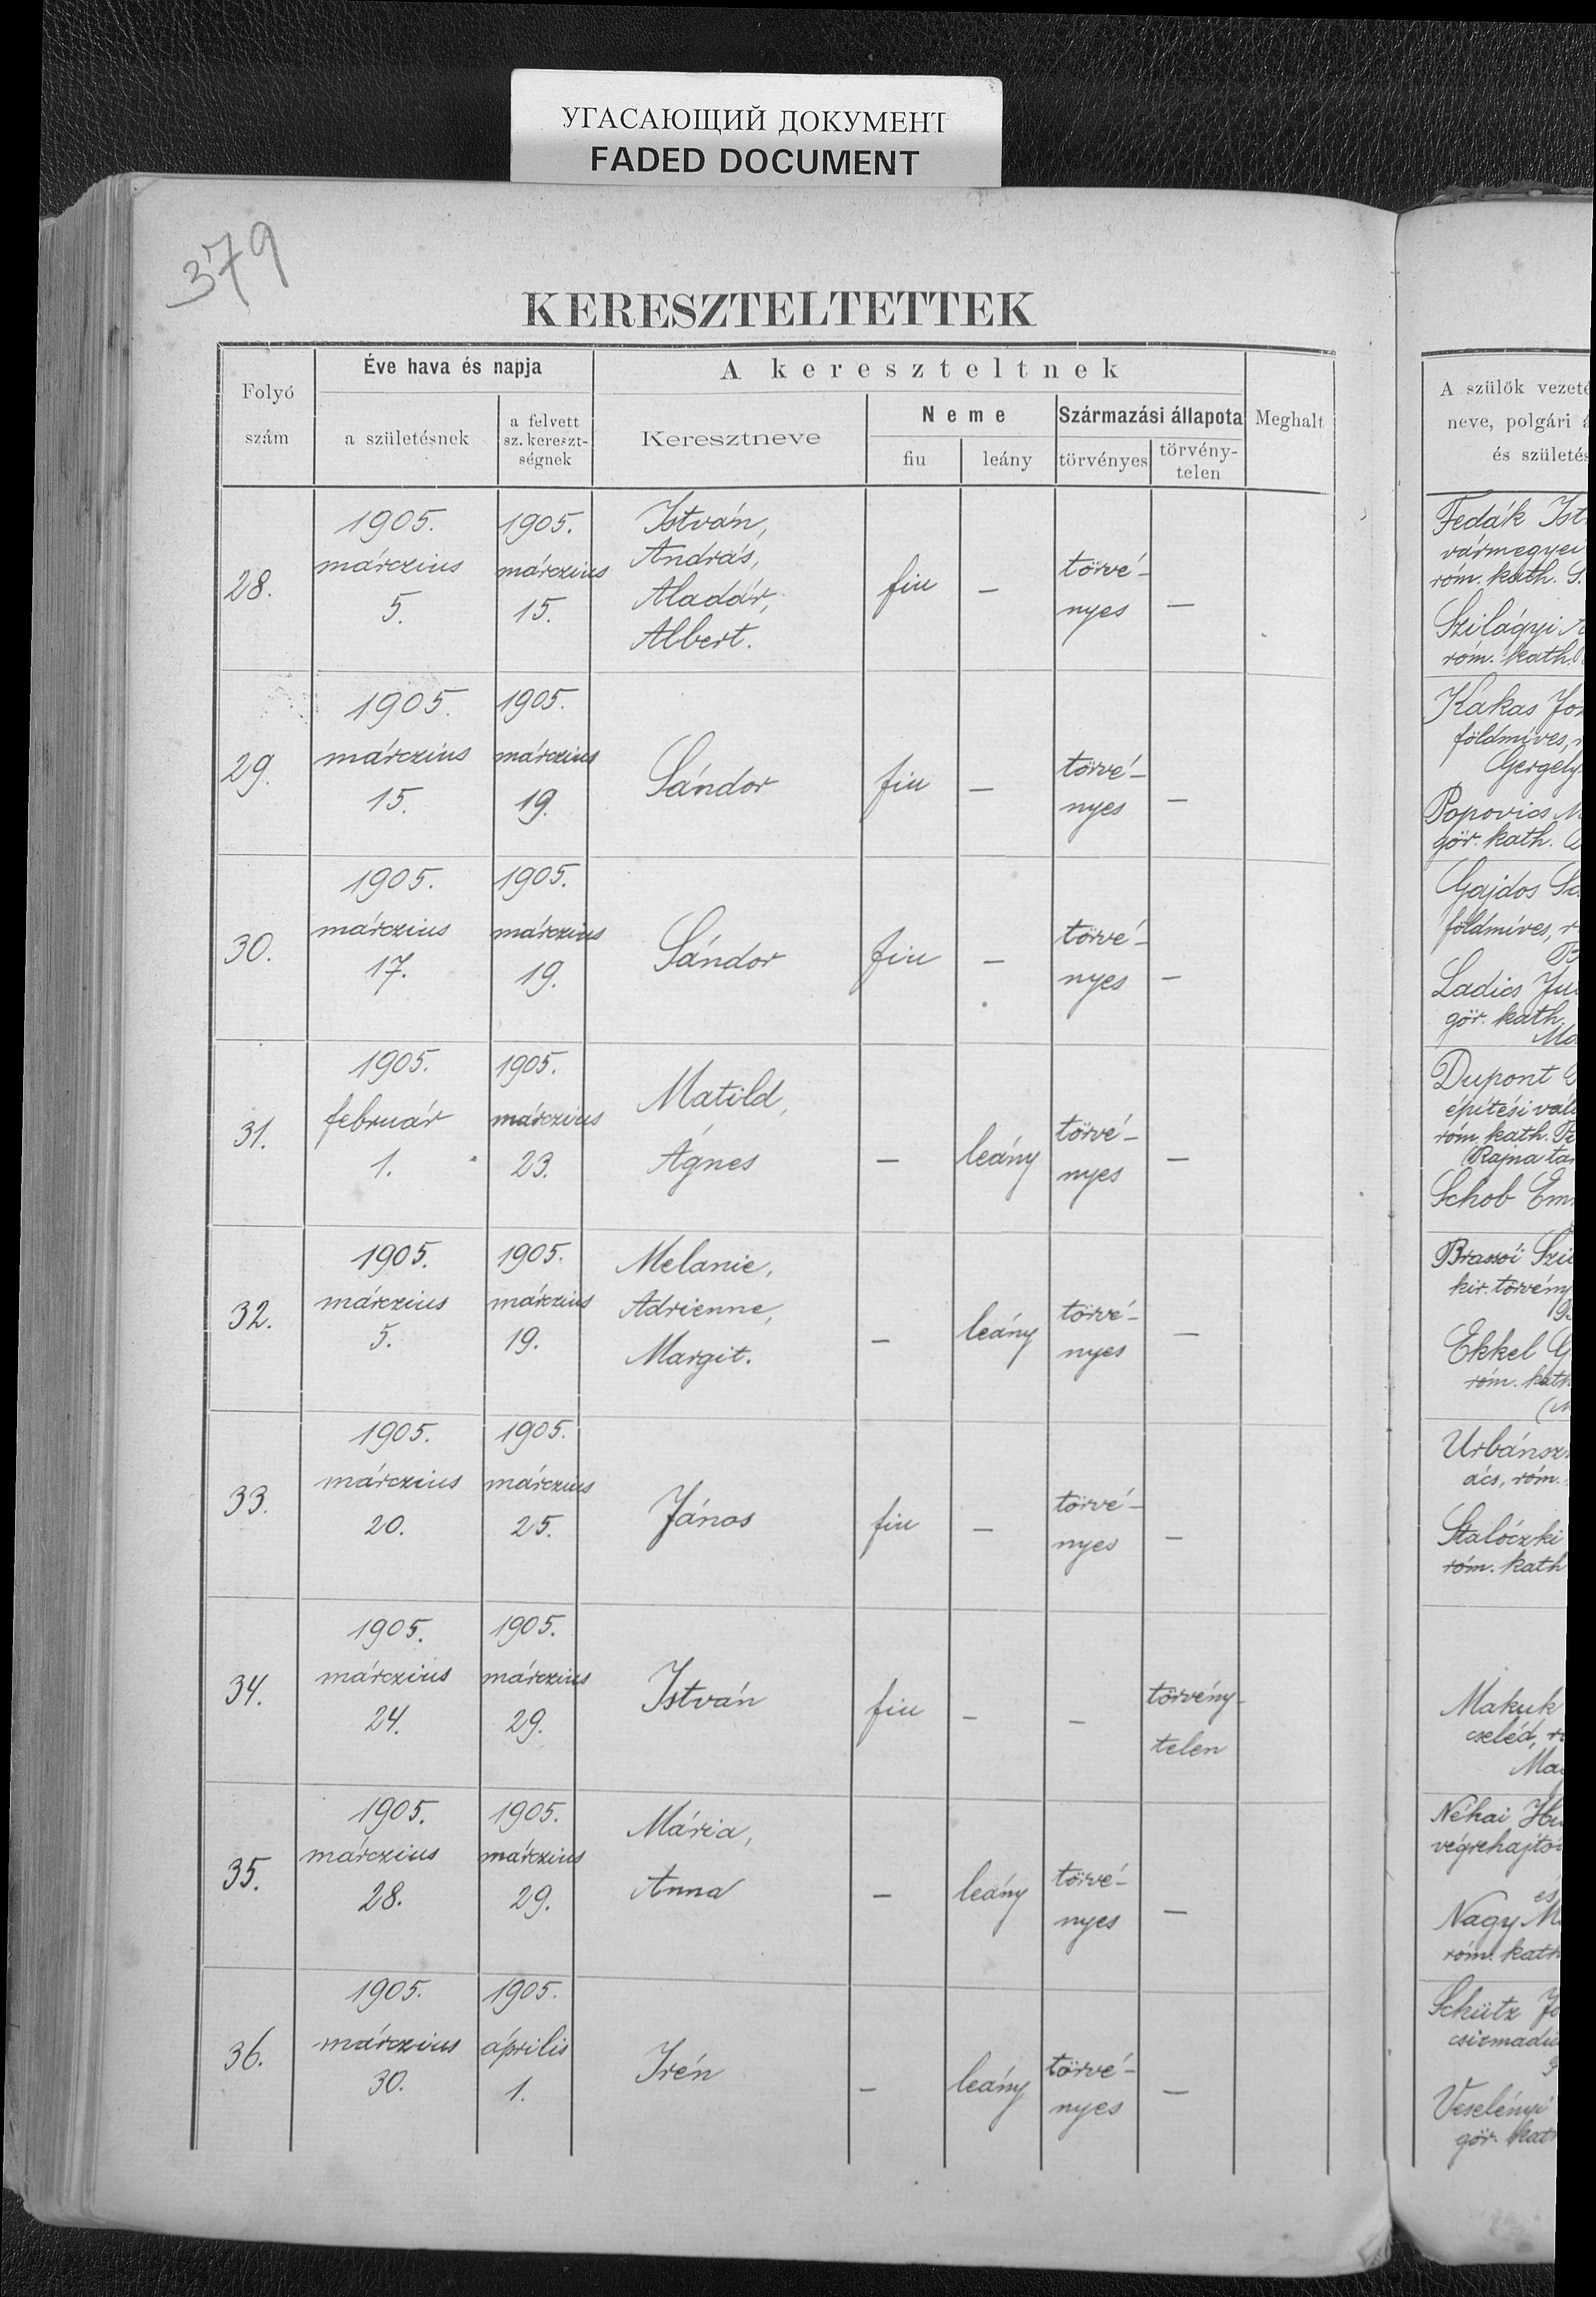 УГАСАЮЩИЙ ДОКУМЕНТ
FADED DOCUMENT
379
KERESZTELTETTEK
Folyó szám
Éve hava és napja
a születésnek
a felvett sz. kereszt-ségnek
A kereszteltnek
Keresztneve
Neme
fiu
leány
Származási állapota
törvényes
törvény-telen
Meghalt
28.
1905.
márczius
5.
1905.
márczius
15.
István,
András,
Aladár,
Albert.
fiu
—
törvé-
nyes
—
29.
1905.
márczius
15.
1905.
márczius
19.
Sándor
fiu
—
törvé-
nyes
—
30.
1905.
márczius
17.
1905.
márczius
19.
Sándor
fiu
—
törvé-
nyes
—
31.
1905.
február
1.
1905.
márczius
23.
Matild,
Ágnes
—
leány
törvé-
nyes
—
32.
1905.
márczius
5.
1905.
márczius
19.
Melanie,
Adrienne,
Margit.
—
leány
törvé-
nyes
—
33.
1905.
márczius
20.
1905.
márczius
25.
János
fiu
—
törvé-
nyes
—
34.
1905.
márczius
24.
1905.
márczius
29.
István
fiu
—
—
törvény-
telen
35.
1905.
márczius
28.
1905.
márczius
29.
Mária,
Anna
—
leány
törvé-
nyes
—
36.
1905.
márczius
30.
1905.
április
1.
Irén
—
leány
törvé-
nyes
—
A szülők vezeté
neve, polgári á
és születés
Fedák Ist
vármegyei
róm. kath. S.
Szilágyi
róm. kath.
Kakas Jó
földmíves,
Gergely
Popovics M
gör. kath.
Gajdos Sá
földmíves, r
Ladics Ju
gör. kath.
Ma
Dupont
építési váll
róm. kath.
(Rajna ta
Schob Em
Brassói Szi
kir. törvény
Ekkel G
róm. kath
(M
Urbánsz
ács, róm.
Stalóczki
róm. kath
Makuk
cseléd, r
Ma
Néhai Hu
végrehajtó
és
Nagy M
róm. kath
Schütz Jó
csizmadi
Veselényi
gör. kat